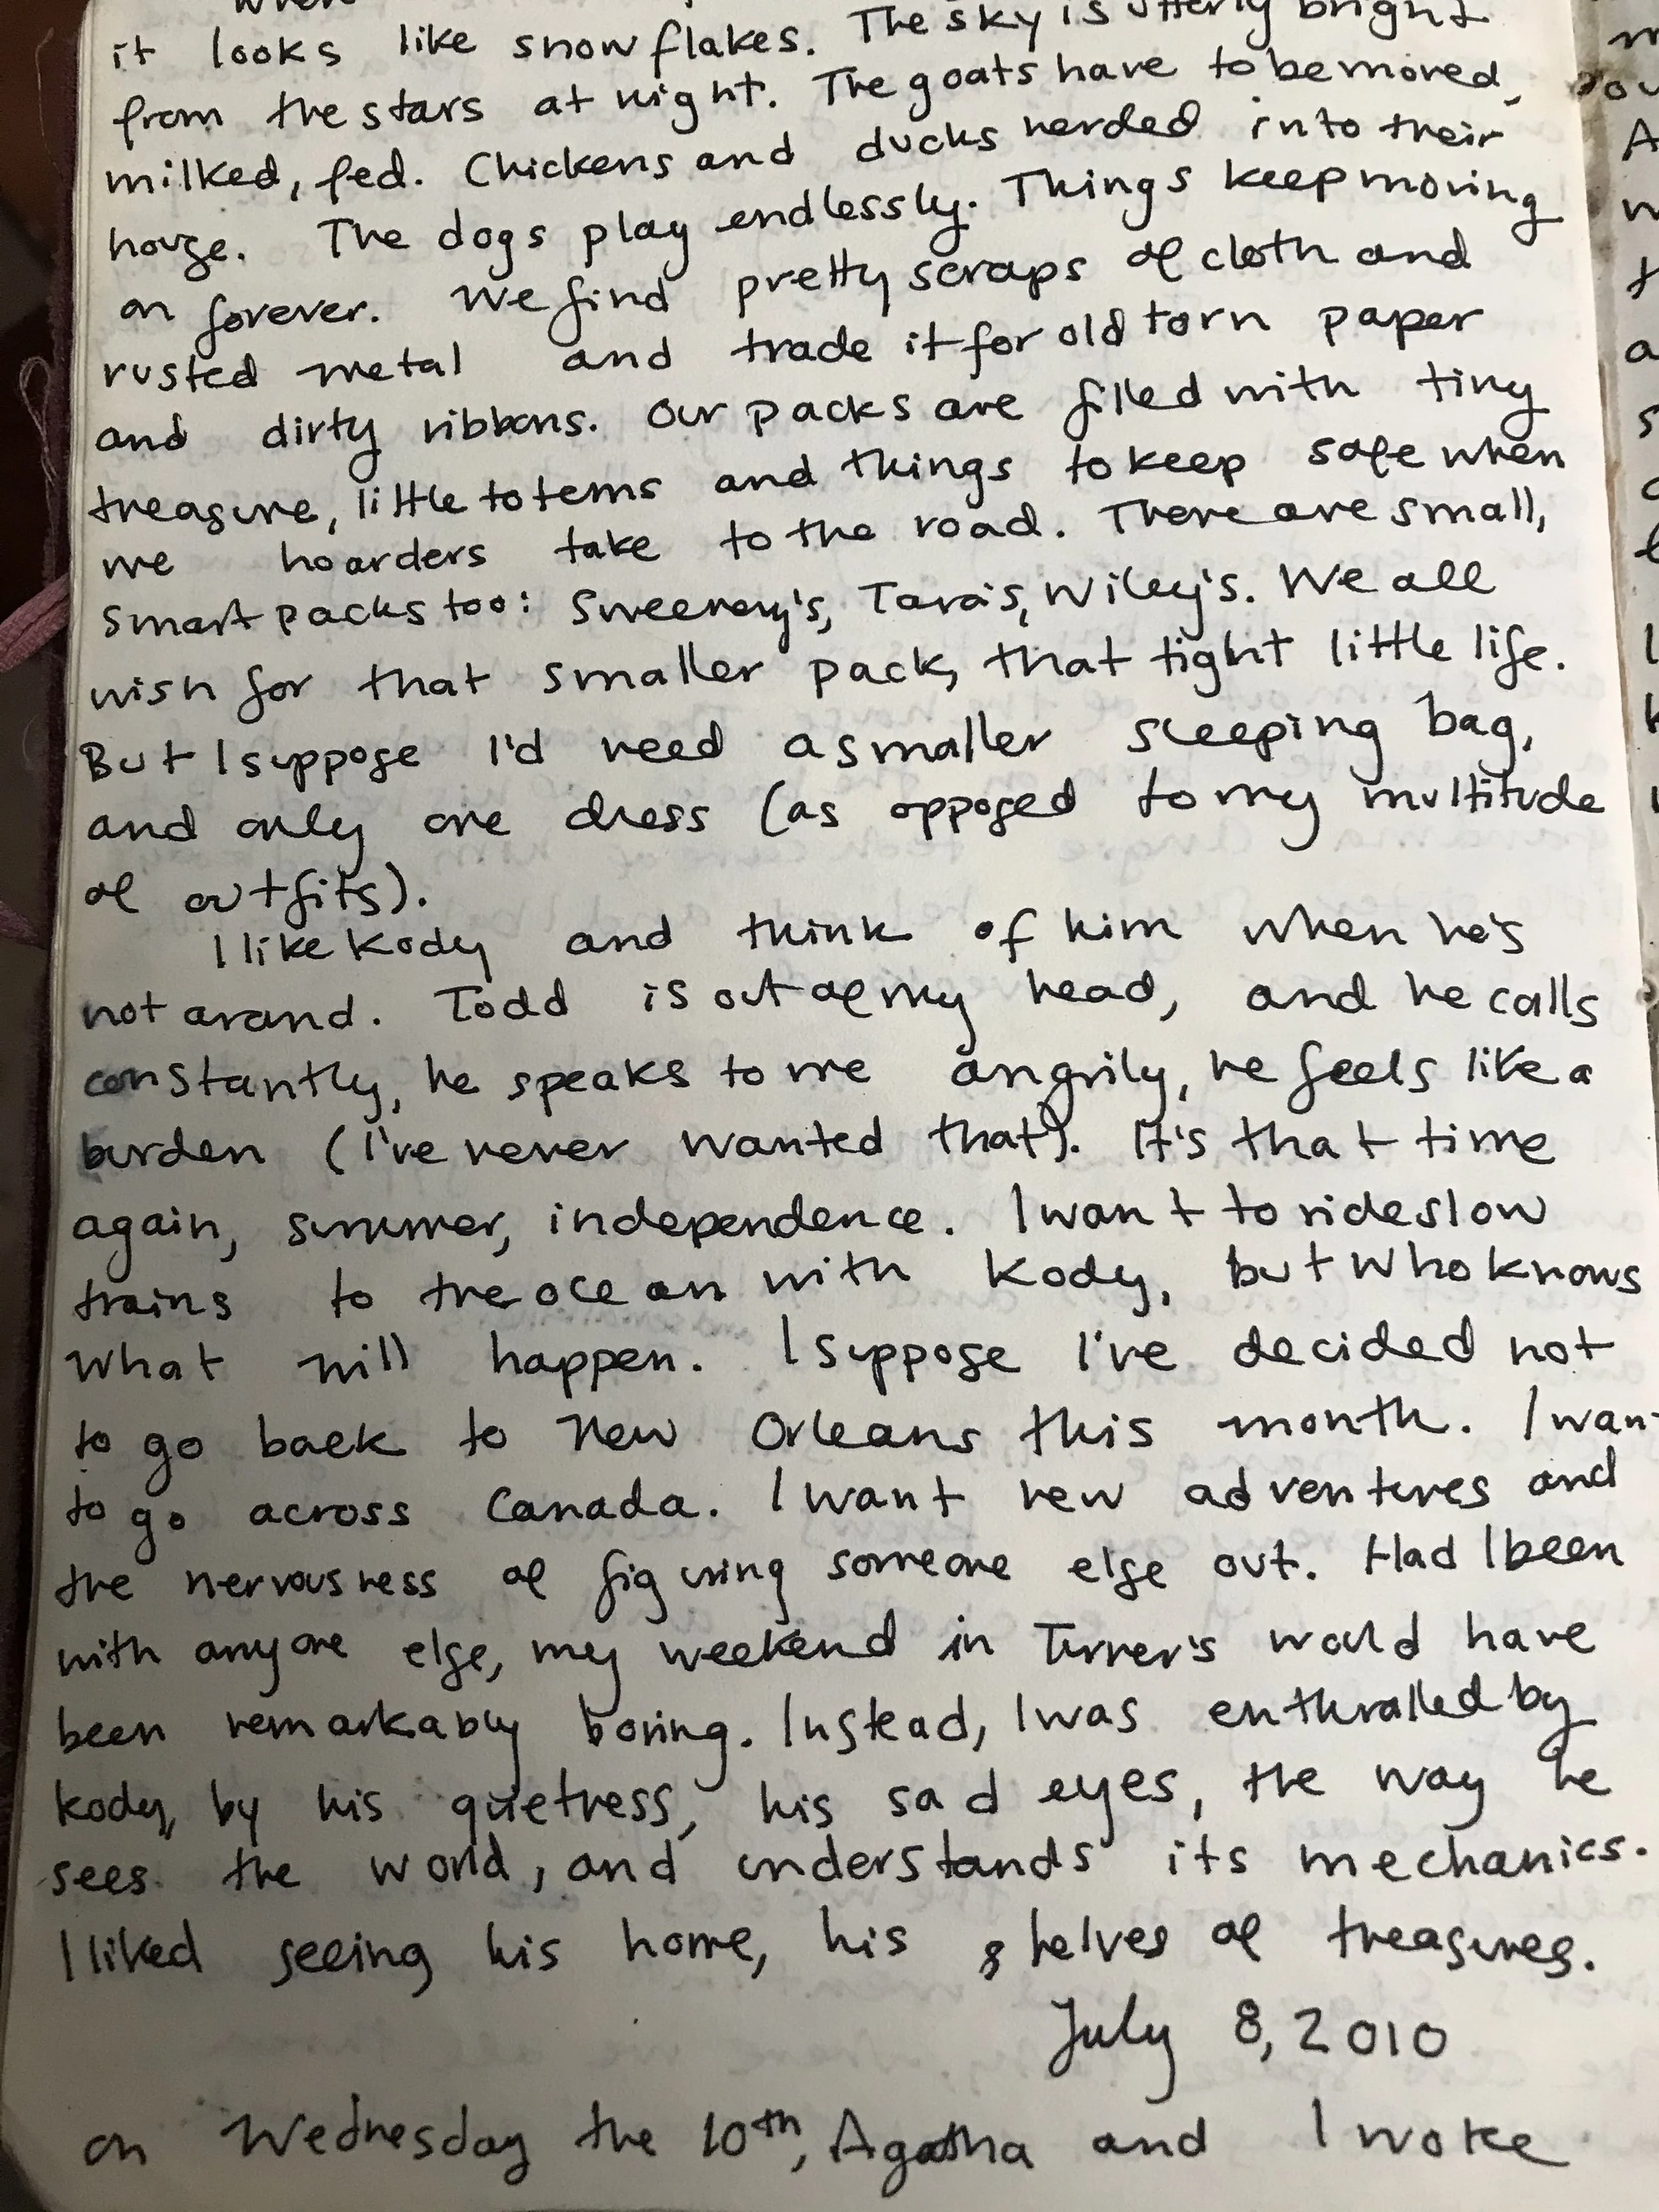 when
it looks like snowflakes. The sky is utterly bright
from the stars at night. The goats have to be moved,
milked, fed. Chickens and ducks herded into their
house. The dogs play endlessly. Things keep moving
on forever. We find pretty scraps of cloth and
rusted metal and trade it for old torn paper
and dirty ribbons. Our packs are filled with tiny
treasure, little totems and things to keep safe when
we hoarders take to the road. There are small,
smart packs too: Sweeney's, Tara's, Wiley's. We all
wish for that smaller pack, that tight little life.
But I suppose I'd need a smaller sleeping bag,
and only one dress (as opposed to my multitude
of outfits).
I like Kody and think of him when he's
not around. Todd is out of my head, and he calls
constantly, he speaks to me angrily, he feels like a
burden (I've never wanted that). It's that time
again, summer, independence. I want to ride slow
trains to the ocean with Kody, but who knows
what will happen. I suppose I've decided not
to go back to New Orleans this month. I wan
to go across Canada. I want new adventures and
the nervousness of figuring someone else out. Had I been
with anyone else, my weekend in Turner's would have
been remarkably boring. Instead, I was enthralled by
Kody, by his quietness, his sad eyes, the way he
sees the world, and understands its mechanics.
I liked seeing his home, his shelves of treasures.
July 8, 2010
on Wednesday the 10th, Agatha and I woke